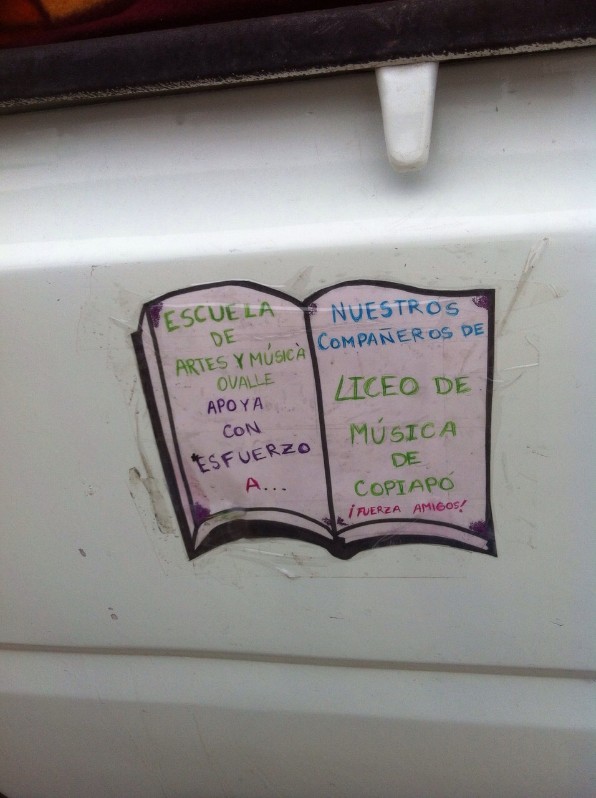 ESCUELA
DE
ARTES Y MÚSICA
OVALLE
APOYA
CON
ESFUERZO
A...
NUESTROS
COMPAÑEROS DE
LICEO DE
MÚSICA
DE
COPIAPÓ
¡FUERZA AMIGOS!